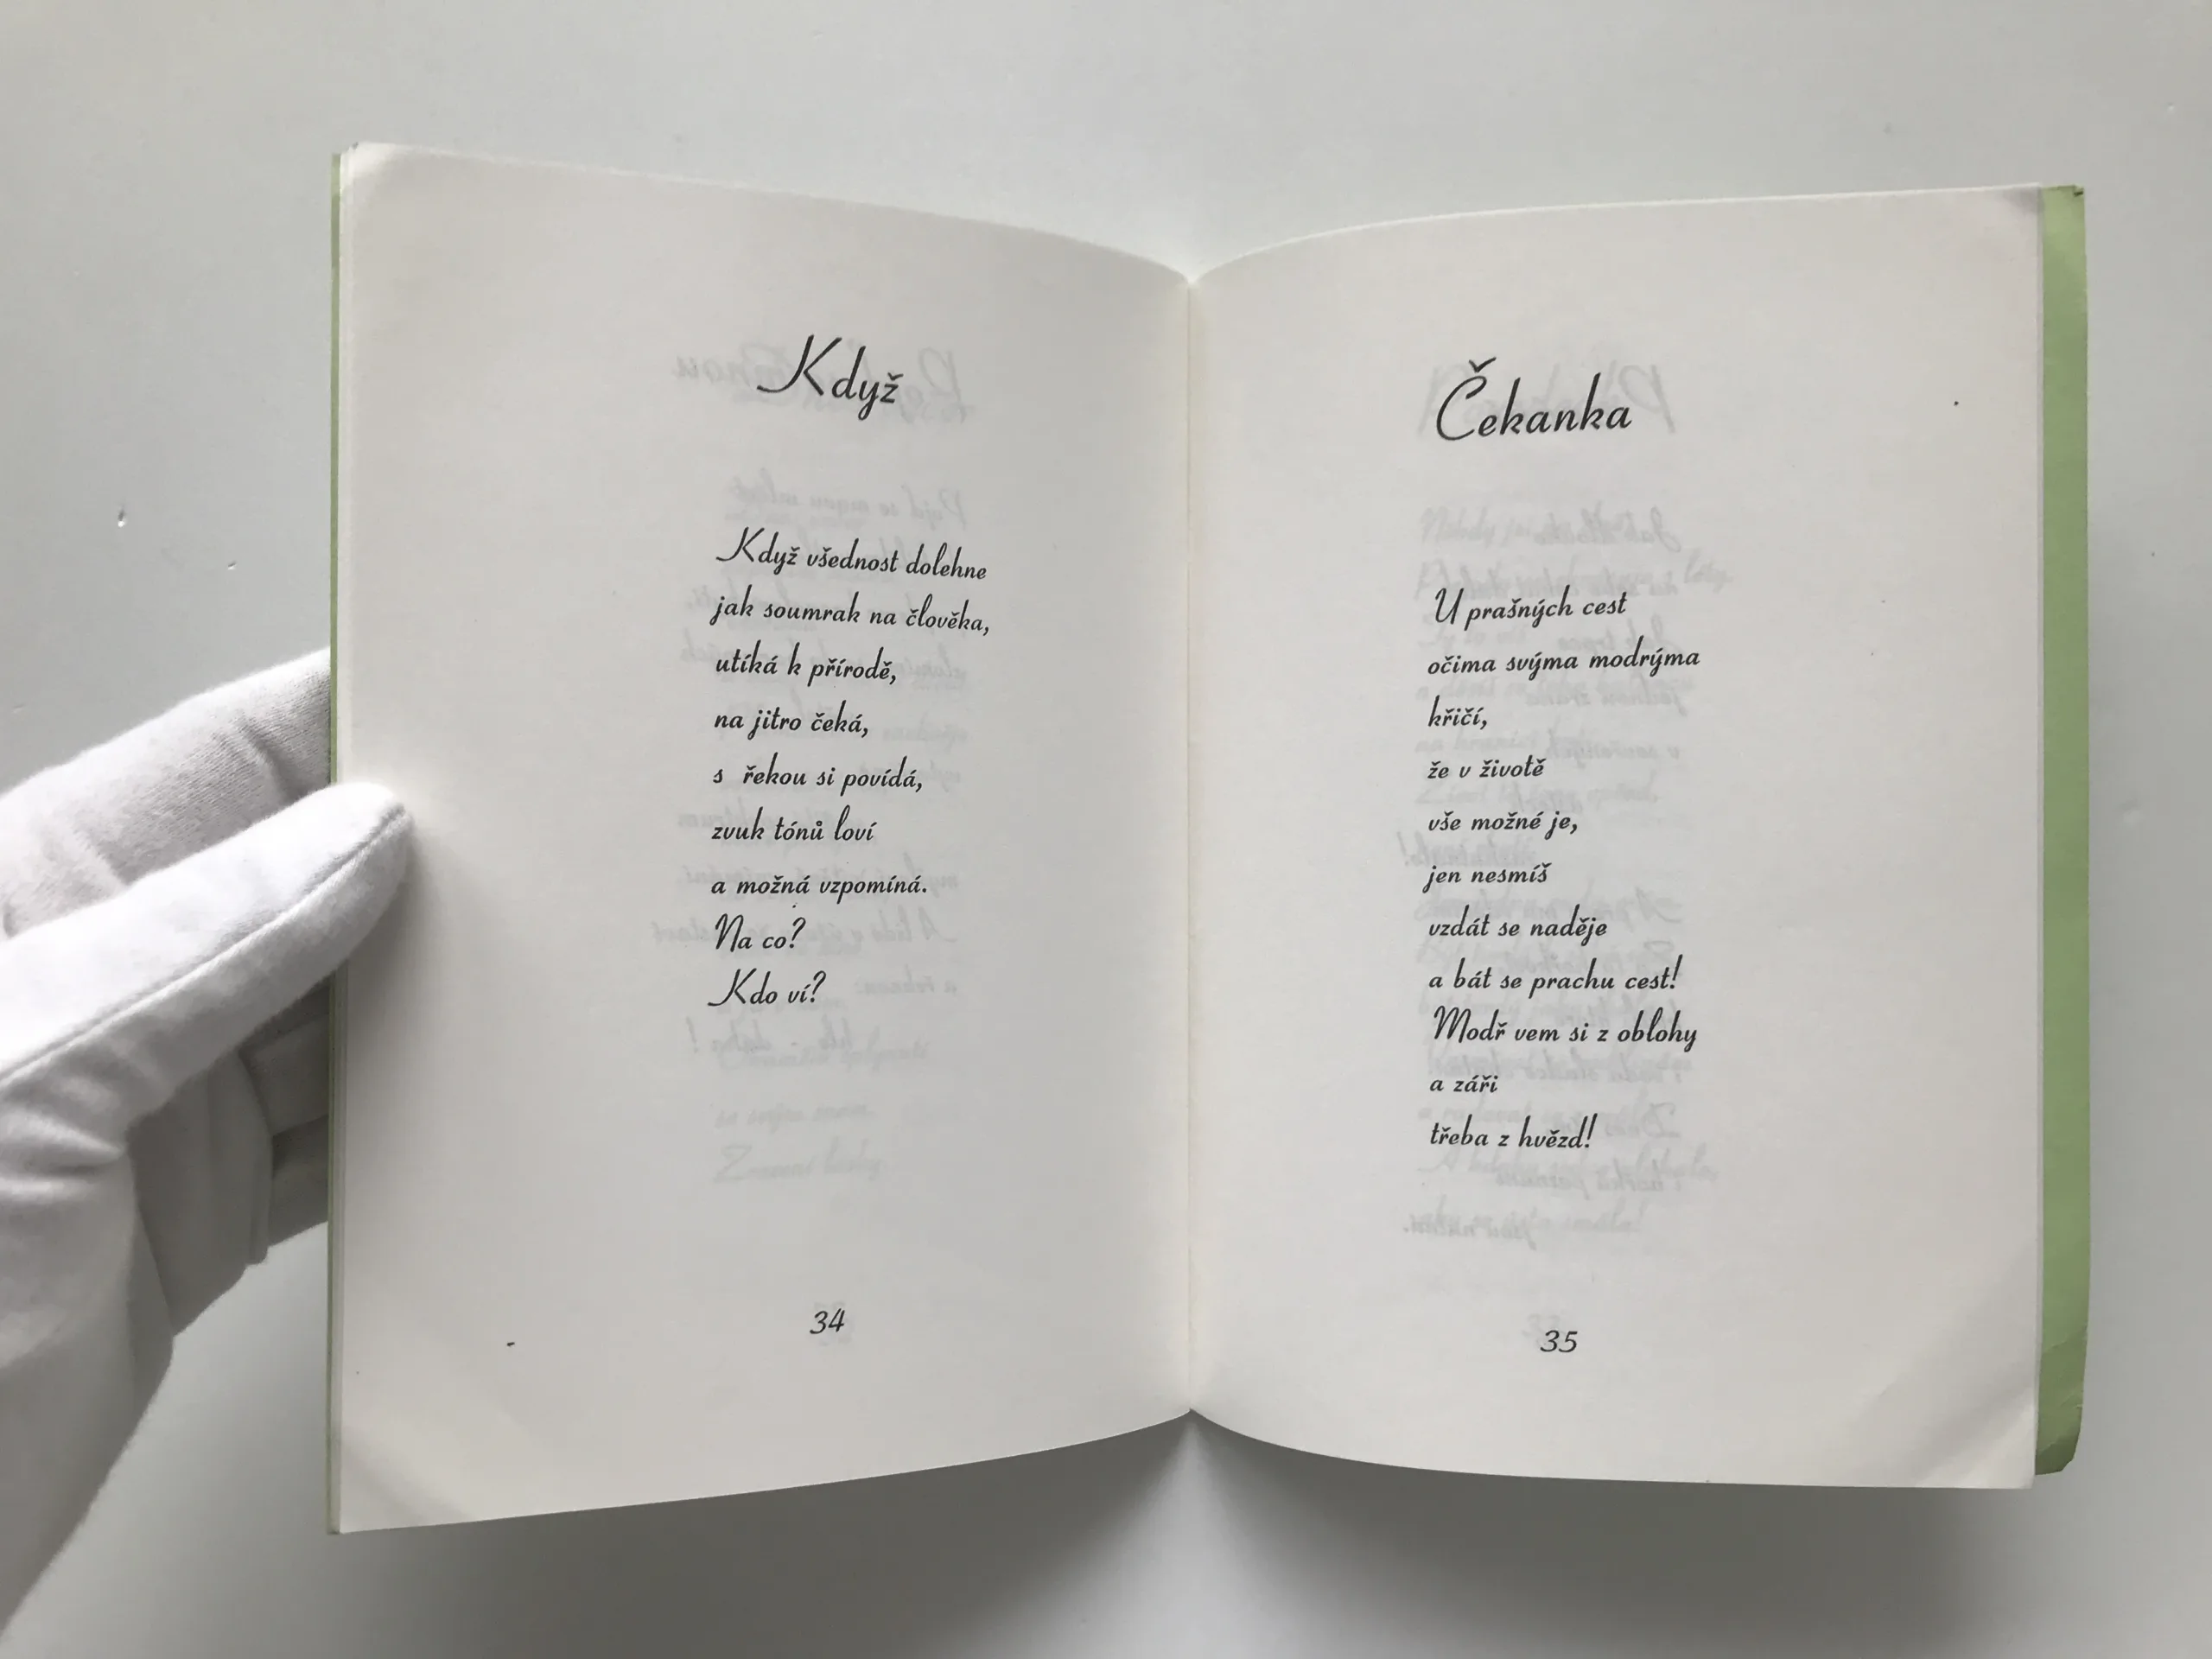 Když
Když všednost dolehne
jak soumrak na člověka,
utíká k přírodě,
na jitro čeká,
s řekou si povídá,
zvuk tónů loví
a možná vzpomíná.
Na co?
Kdo ví?
34
Čekanka
U prašných cest
očima svýma modrýma
křičí,
že v životě
vše možné je,
jen nesmíš
vzdát se naděje
a bát se prachu cest!
Modř vem si z oblohy
a záři
třeba z hvězd!
35